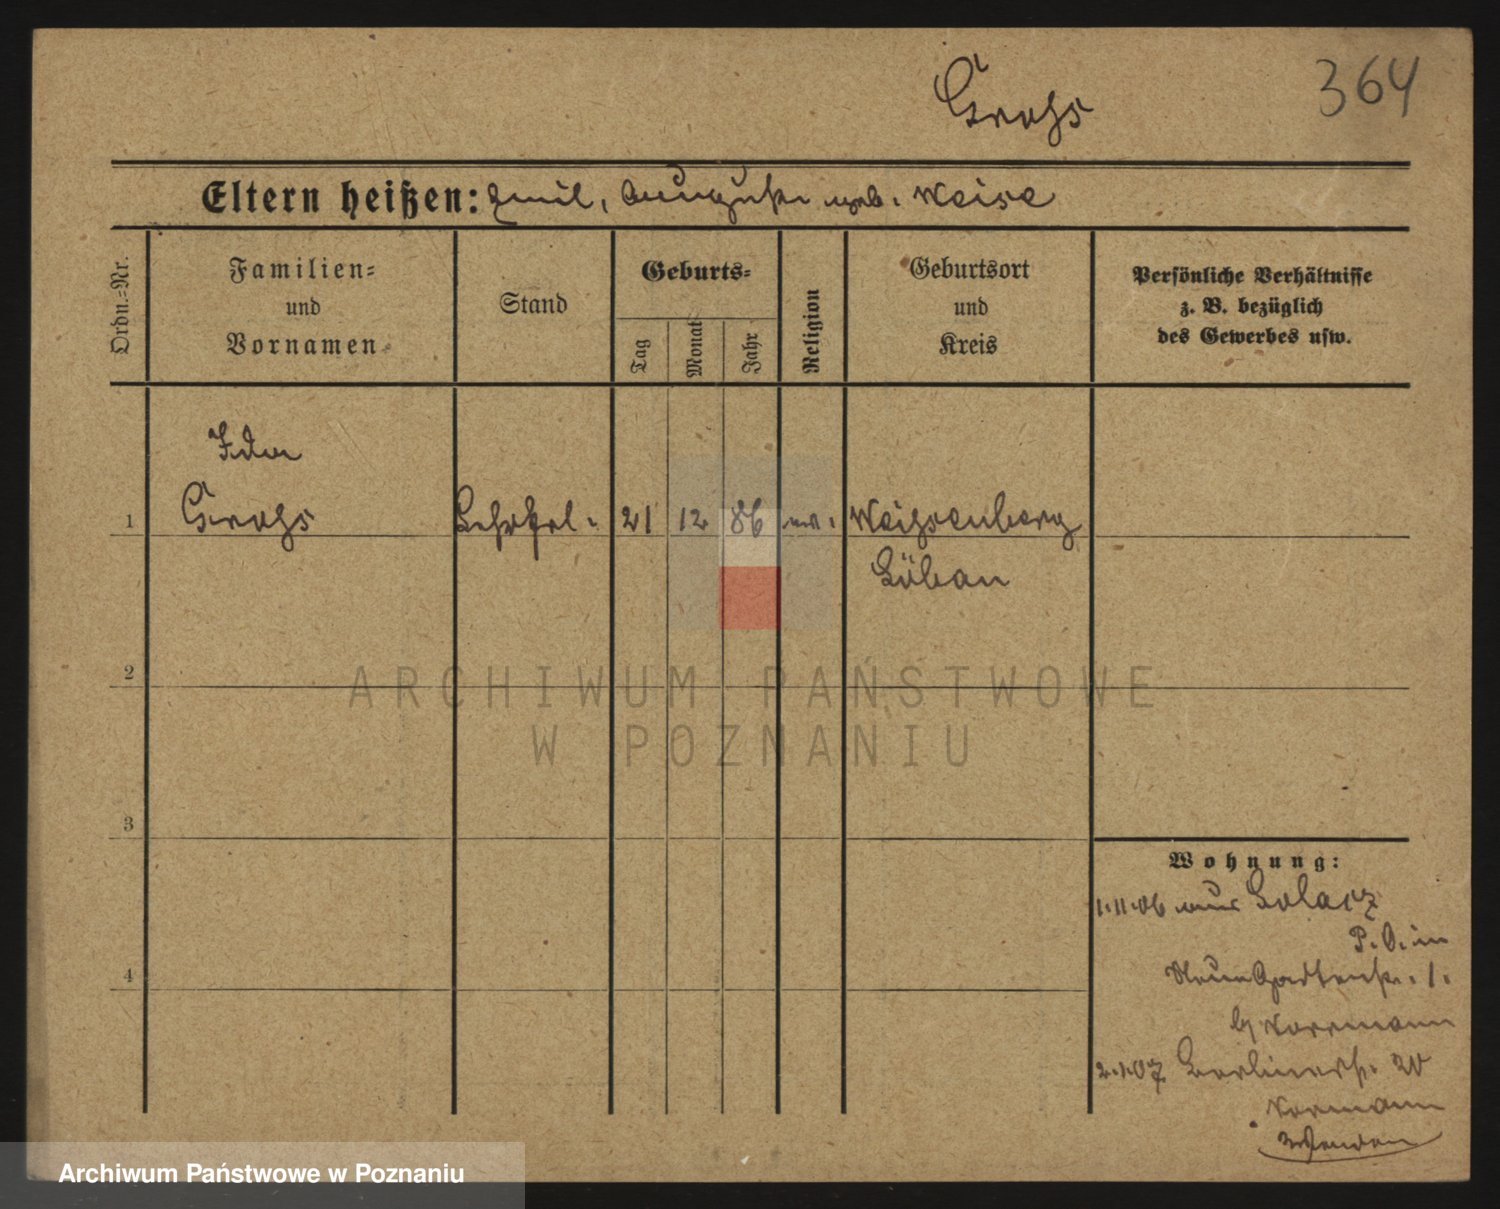 Grohs
364
Eltern heißen: Emil, Auguste geb. Weise
Ordn.-Nr.
Familien-
und
Vornamen
Stand
Geburts-
Tag
Monat
Jahr
Religion
Geburtsort
und
Kreis
Persönliche Verhältnisse
z. B. bezüglich
des Gewerbes usw.
Ida
1 Grohs 21 12 86 ev. Weißenberg
Löbau
2
ARCHIWUM PAŃSTWOWE
W POZNANIU
3
Wohnung:
1.11.06 aus Solacz
P. O. in
4 Neue Gartenstr. 1.
b/ Kormann
2.1.07 Berlinerstr. 20
Kormann
Wenden
Archiwum Państwowe w Poznaniu